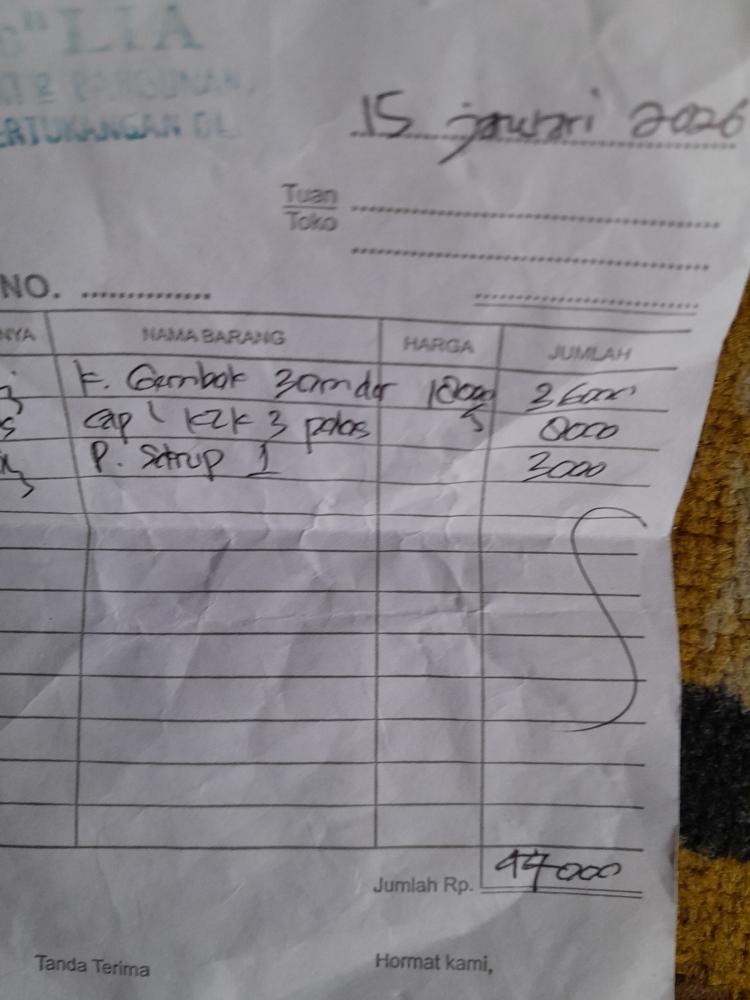 "LIA
BANGUNAN,
ERTUKANGAN DLL
15 januari 2026
Tuan
Toko
NO. ...............
NYA NAMA BARANG HARGA JUMLAH
k. Gembok 30 18000 36000
cap 3 polos 8000
P. Strup 1 3000
Jumlah Rp. 47000
Tanda Terima Hormat kami,